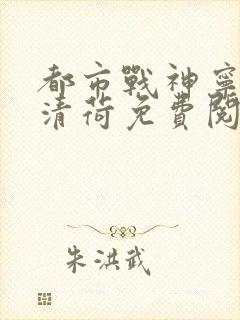 都市戰神寧
清荷免費閱
朱洪武